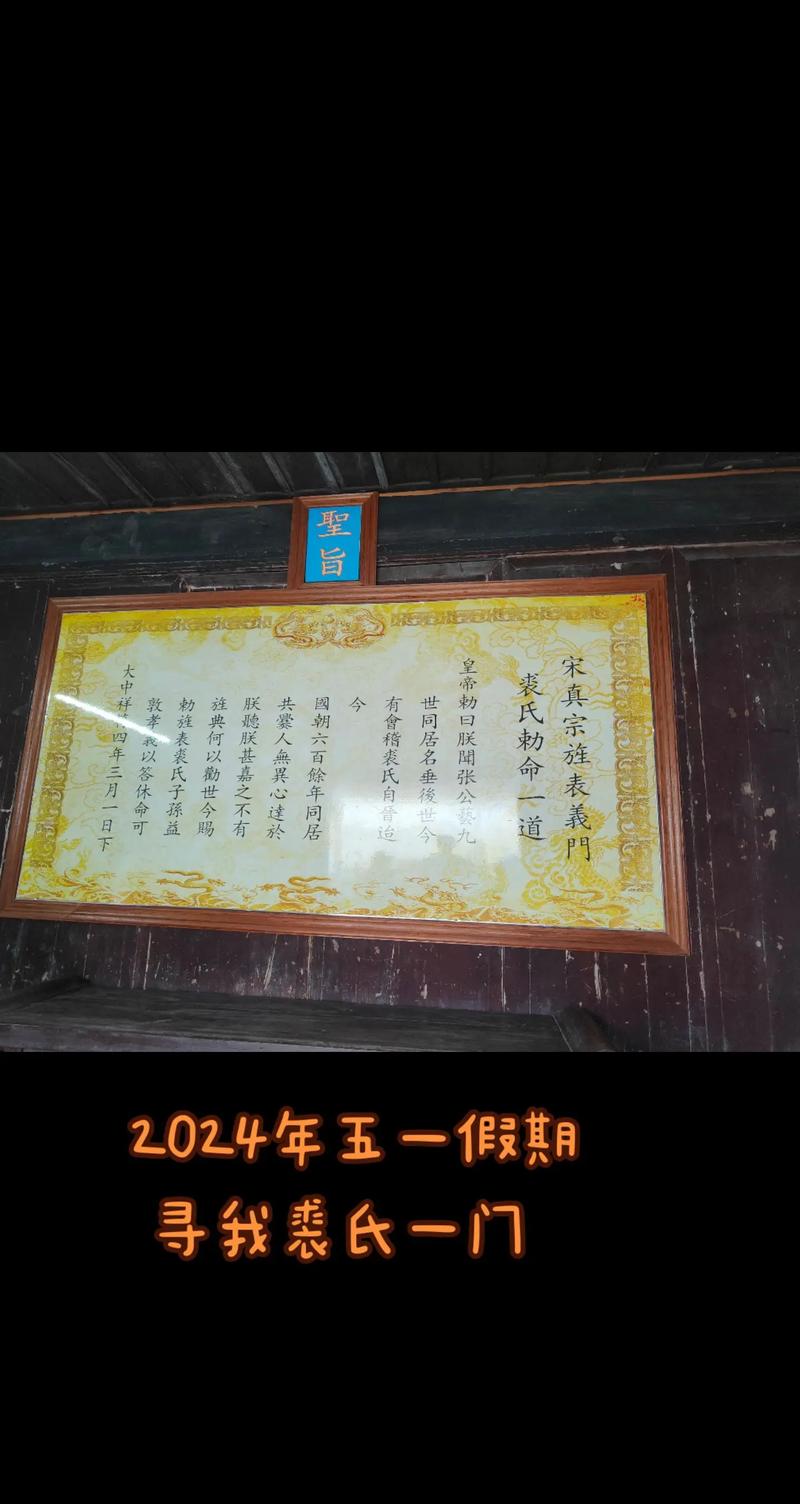 聖旨
宋真宗旌表義門
裘氏勅命一道
皇帝勅曰朕聞张公藝九
世同居名垂後世今
有會稽裘氏自晉迨
今
國朝六百餘年同居
共爨人無異心達於
朕聽朕甚嘉之不有
旌典何以勸世今賜
勅旌表裘氏子孫益
敦孝義以答休命可
大中祥符四年三月一日下
2024年五一假期
寻我裘氏一门